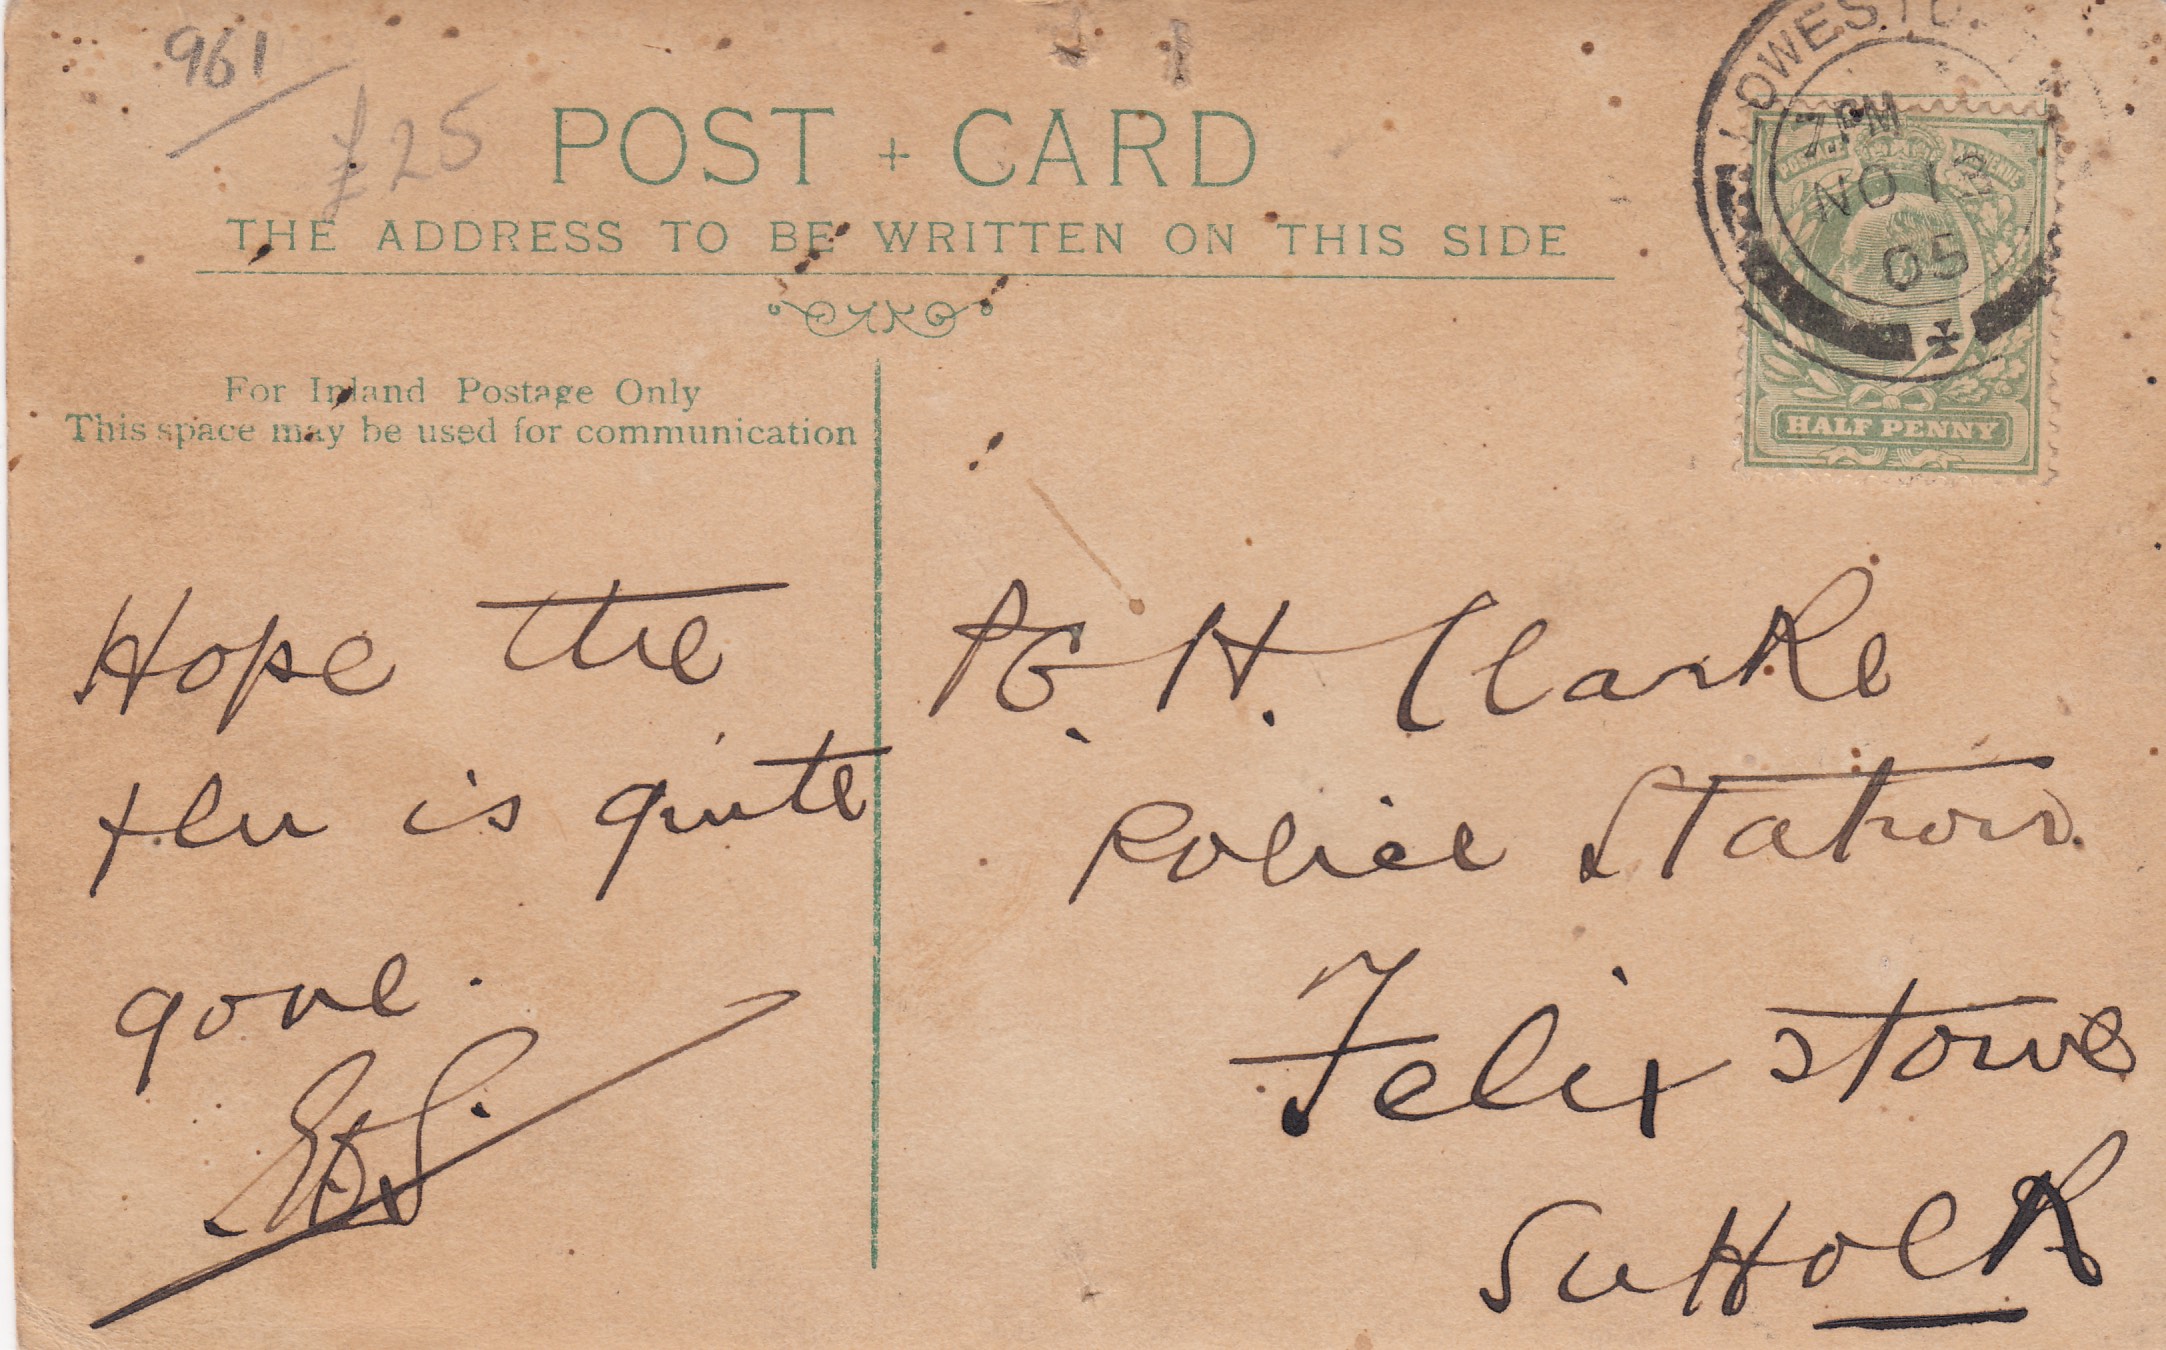 961
£25
POST + CARD
THE ADDRESS TO BE WRITTEN ON THIS SIDE
For Inland Postage Only
This space may be used for communication
LOWESTO
7 PM
NO 12
05
POSTAGE REVENUE
HALF PENNY
Hope the
flu is quite
gone.
P.C. H. Clarke
Police Station.
Felixstowe
Suffolk